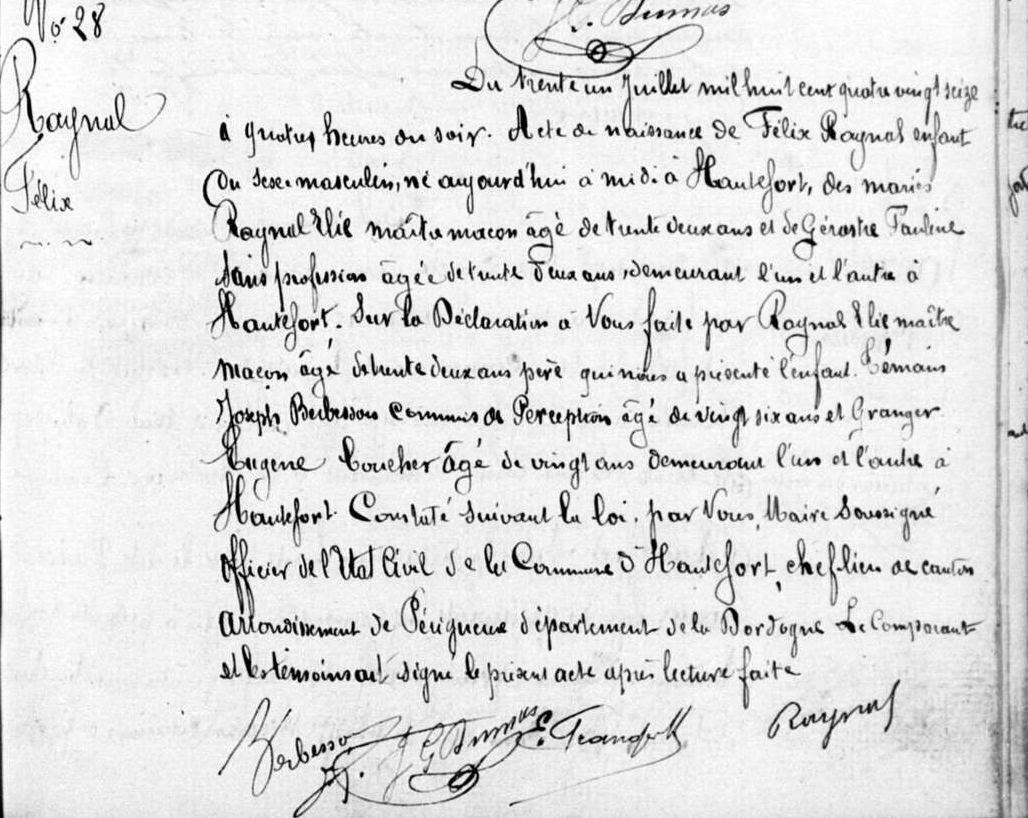 No 28
J. G. Dumas
Raynal
Félix
Du trente un Juillet mil huit cent quatre vingt seize
à quatres heures du soir. Acte de naissance de Félix Raynal enfant
du sexe masculin, né aujourd'hui à midi à Hautefort, des mariés
Raynal Elie maître maçon âgé de trente deux ans et de Pauline
sans profession âgée de trente deux ans, demeurant l'un et l'autre à
Hautefort. Sur la Déclaration à Nous faite par Raynal Elie maître
maçon âgé de trente deux ans père qui nous a présenté l'enfant. Témoins
Joseph Berbesson Commis de Perception âgé de vingt six ans et Granger
Eugène boucher âgé de vingt ans demeurant l'un et l'autre à
Hautefort. Constaté suivant la loi, par Nous, Maire Soussigné
officier de l'Etat Civil de la Commune d'Hautefort, chef-lieu de canton
arrondissement de Périgueux département de la Dordogne Le Comparant
et les témoins ont signé le présent acte après lecture faite
Berbesson J. G. Dumas E. Raynal